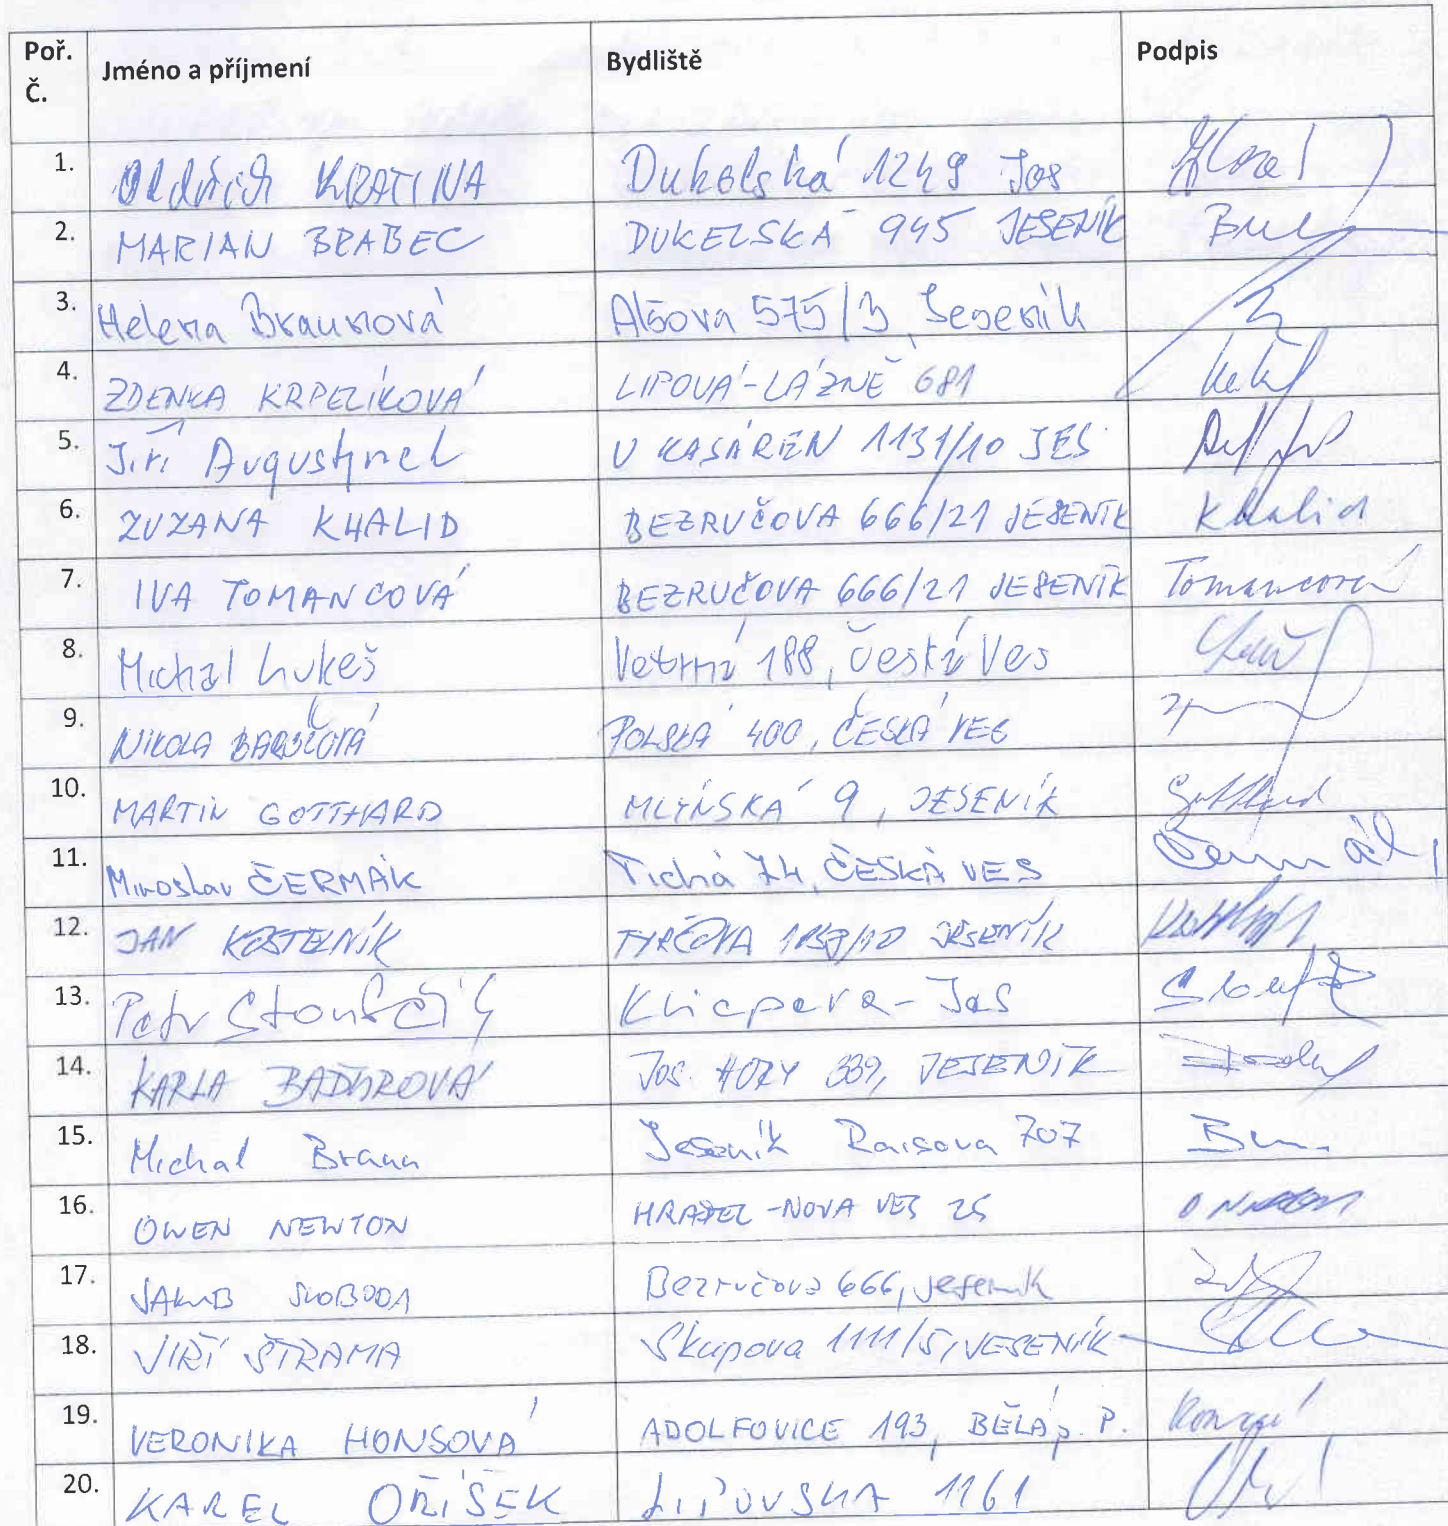 Poř. Č. Jméno a příjmení Bydliště Podpis
1. Oldřich KRATINA Dukelská 1249 Jes
2. MARIAN BRABEC DUKELSKÁ 945 JESENÍK
3. Helena Braunová Alšova 575/3, Jeseník
4. ZDENKA KRPELÍKOVÁ LIPOVÁ-LÁZNĚ 681
5. Jiří Augustynek U KASÁREN 1131/10 JES
6. ZUZANA KHALID BEZRUČOVA 666/21 JESENÍK Khalid
7. IVA TOMANCOVÁ BEZRUČOVA 666/21 JESENÍK Tomancová
8. Michal Lukeš Větrná 188, Česká Ves
9. NIKOLA POLSKÁ 400, ČESKÁ VES
10. MARTIN GOTTHARD MLÝNSKÁ 9, JESENÍK Gotthard
11. Miroslav ČERMÁK Tichá 74, ČESKÁ VES Čermák
12. JAN KOSTELNÍK TYRŠOVA JESENÍK
13. Petr Klicpera - Jes
14. KARLA JOS. HORY 339, JESENÍK
15. Michal Braun Jeseník Raisova 707
16. OWEN NEWTON HRADEC-NOVÁ VES 25
17. JAKUB SVOBODA Bezručova 666, Jeseník
18. JIŘÍ ŠTRAMA Skupova 1111/5, JESENÍK
19. VERONIKA HONSOVÁ ADOLFOVICE 193, BĚLÁ p. P.
20. KAREL OŘÍŠEK LIPOVSKÁ 1161